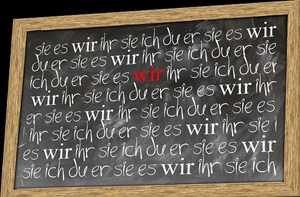 sie es wir ihr sie ich du er sie es wir
du er sie es wir ihr sie ich du er sie
ich du er sie es wir ihr sie ich du er
wir ihr sie ich du er sie es wir ihr
er sie es wir ihr sie ich du er sie es
ihr sie ich du er sie es wir ihr sie i
es wir ihr sie ich du er sie es wir
sie ich du er sie es wir ihr sie ich